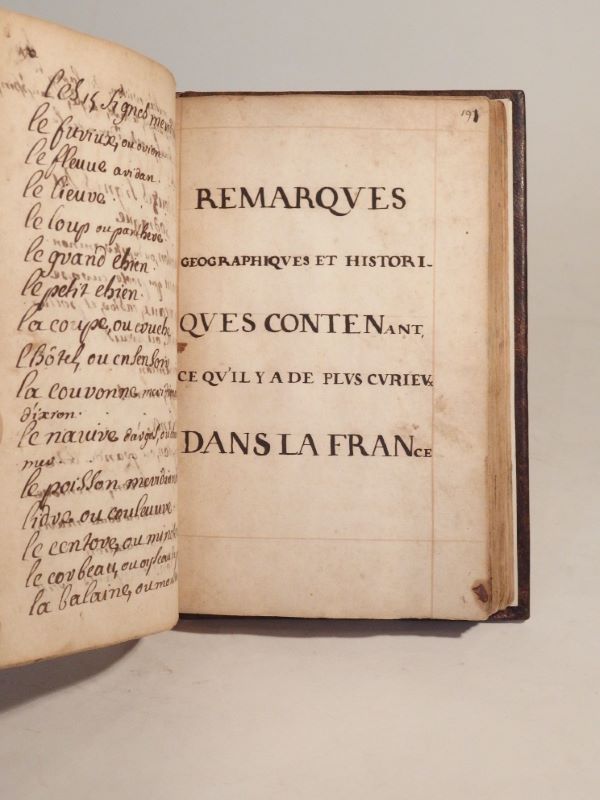 les 15 signes meridi
le furieux, ou orion
le fleuue aridan.
le lieuve.
le loup ou panthere
le grand chien.
le petit chien.
la coupe, ou cruche
l'Hôtel, ou ensensoir
la couronne meridion
d'ixron.
le navire d'argos, ou
mus.
le poisson meridiona
lidre ou couleuure.
le centore, ou minot
le corbeau, ou oyseau
la balaine, ou
191
REMARQVES
GEOGRAPHIQVES ET HISTORI-
QVES CONTENANT,
CE QV'IL Y A DE PLVS CVRIEVX
DANS LA FRANCE